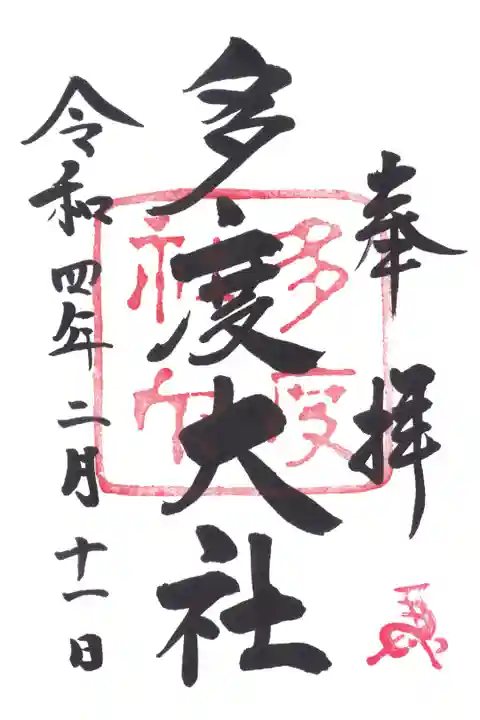 奉拝
多度大社
令和四年二月十一日
多度
神社